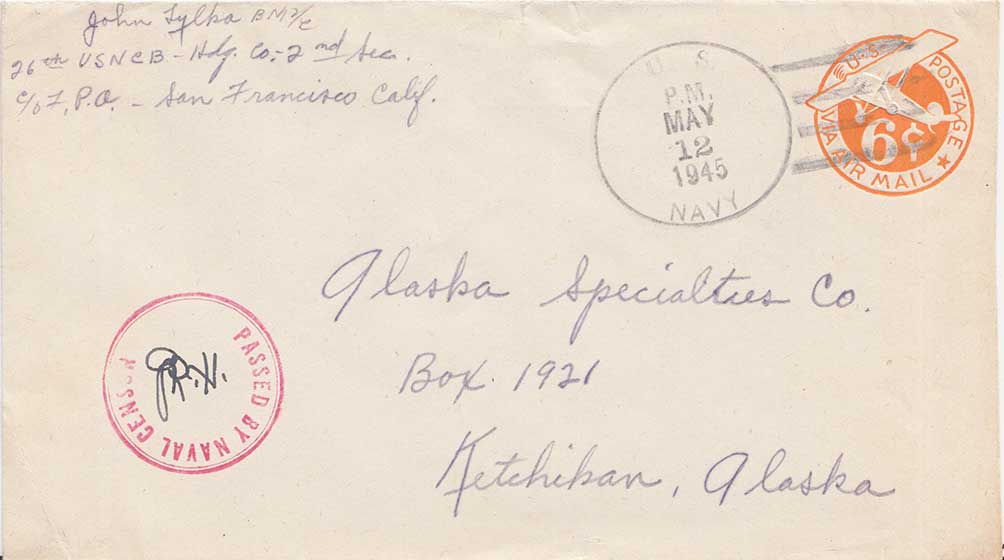 John Tylka BM2/c
26th USNCB - Hdq. Co. - 2nd Sec.
c/o F.P.O. - San Francisco Calif.
U. S.
P.M.
MAY
12
1945
NAVY
U·S POSTAGE
6¢
VIA AIR MAIL
Alaska Specialties Co.
Box 1921
Ketchikan, Alaska
PASSED BY NAVAL CENSOR